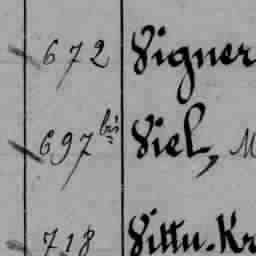 672 Vigner
697 bis Viel, M
718 Vittu-Kr